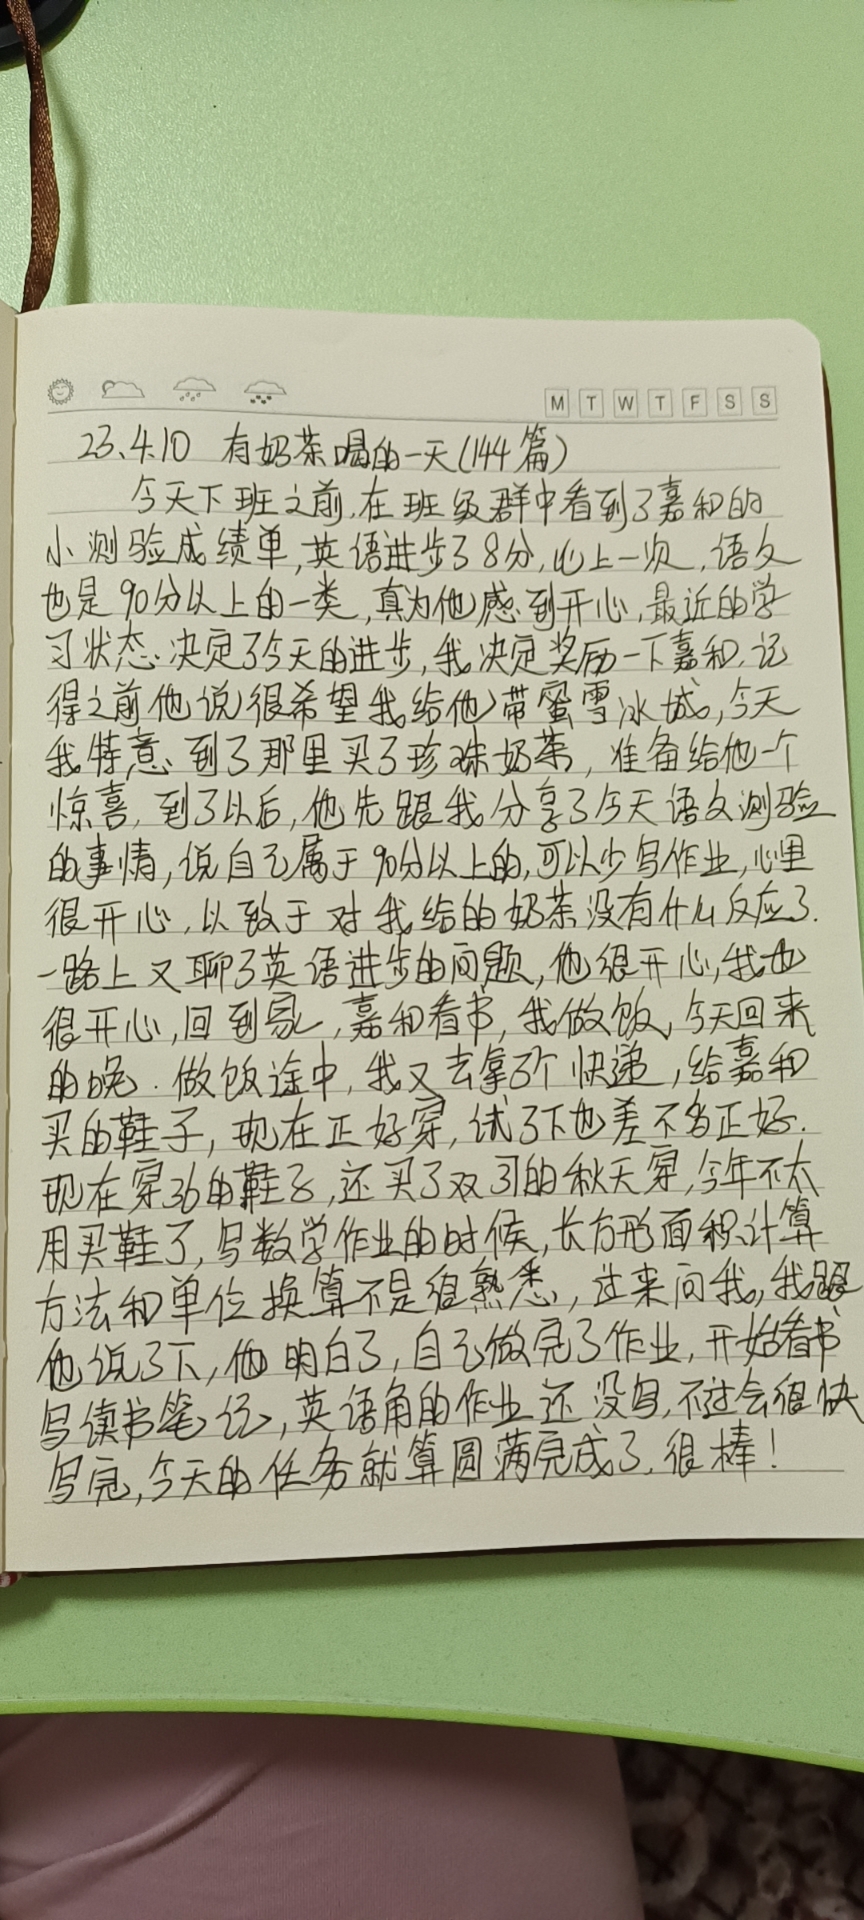 M T W T F S S
23.4.10 有奶茶喝的一天(144篇)
今天下班之前,在班级群中看到了嘉和的
小测验成绩单,英语进步了8分,比上一次,语文
也是90分以上的一类,真为他感到开心,最近的学
习状态.决定了今天的进步,我决定奖励一下嘉和.记
得之前他说很希望我给他带蜜雪冰城,今天
我特意到了那里买了珍珠奶茶,准备给他一个
惊喜,到了以后,他先跟我分享了今天语文测验
的事情,说自己属于90分以上的,可以少写作业,心里
很开心,以致于对我给的奶茶没有什么反应了.
一路上又聊了英语进步的问题,他很开心,我也
很开心,回到家,嘉和看书,我做饭,今天回来
的晚.做饭途中,我又去拿了个快递,给嘉和
买的鞋子,现在正好穿,试了下也差不多正好.
现在穿36的鞋子,还买了双37的秋天穿,今年不太
用买鞋了,写数学作业的时候,长方形面积计算
方法和单位换算不是很熟悉,过来问我,我跟
他说了下,他明白了,自己做完了作业,开始看书
写读书笔记,英语角的作业还没写,不过会很快
写完,今天的任务就算圆满完成了,很棒!